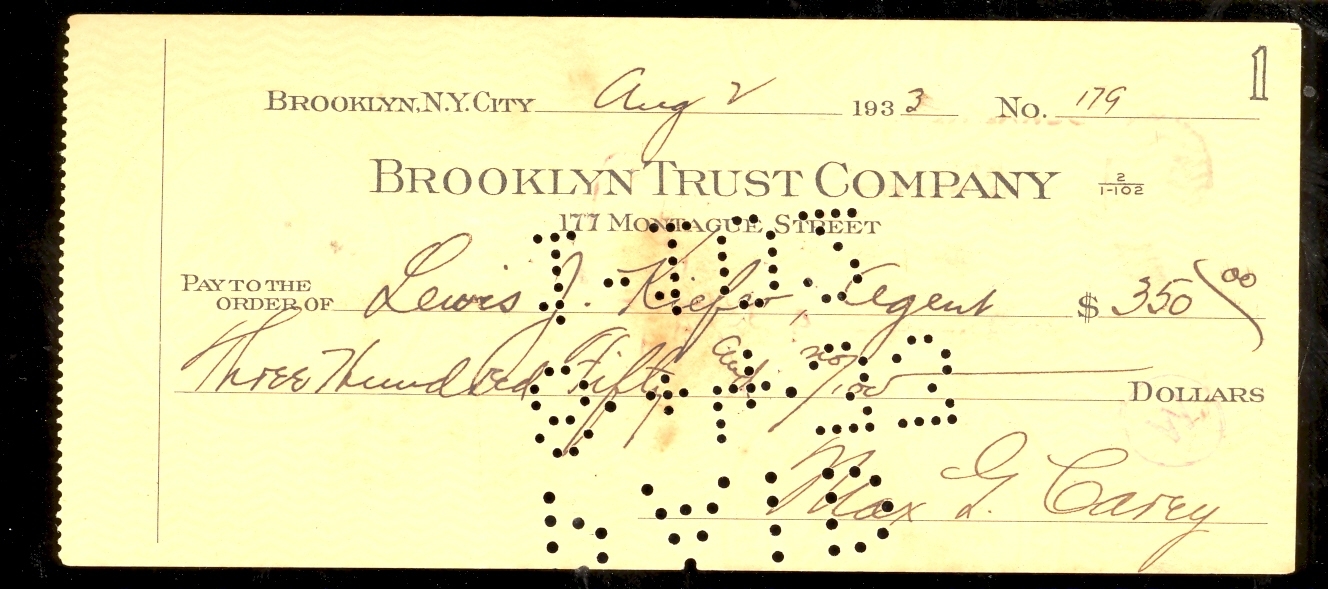 1
BROOKLYN, N.Y. CITY Aug 2 1933 No. 179
BROOKLYN TRUST COMPANY 2/1-102
177 MONTAGUE STREET
PAY TO THE ORDER OF Lewis J. , Agent $ 350 00
Three Hundred Fifty and no/100 DOLLARS
Max G. Carey
PAID